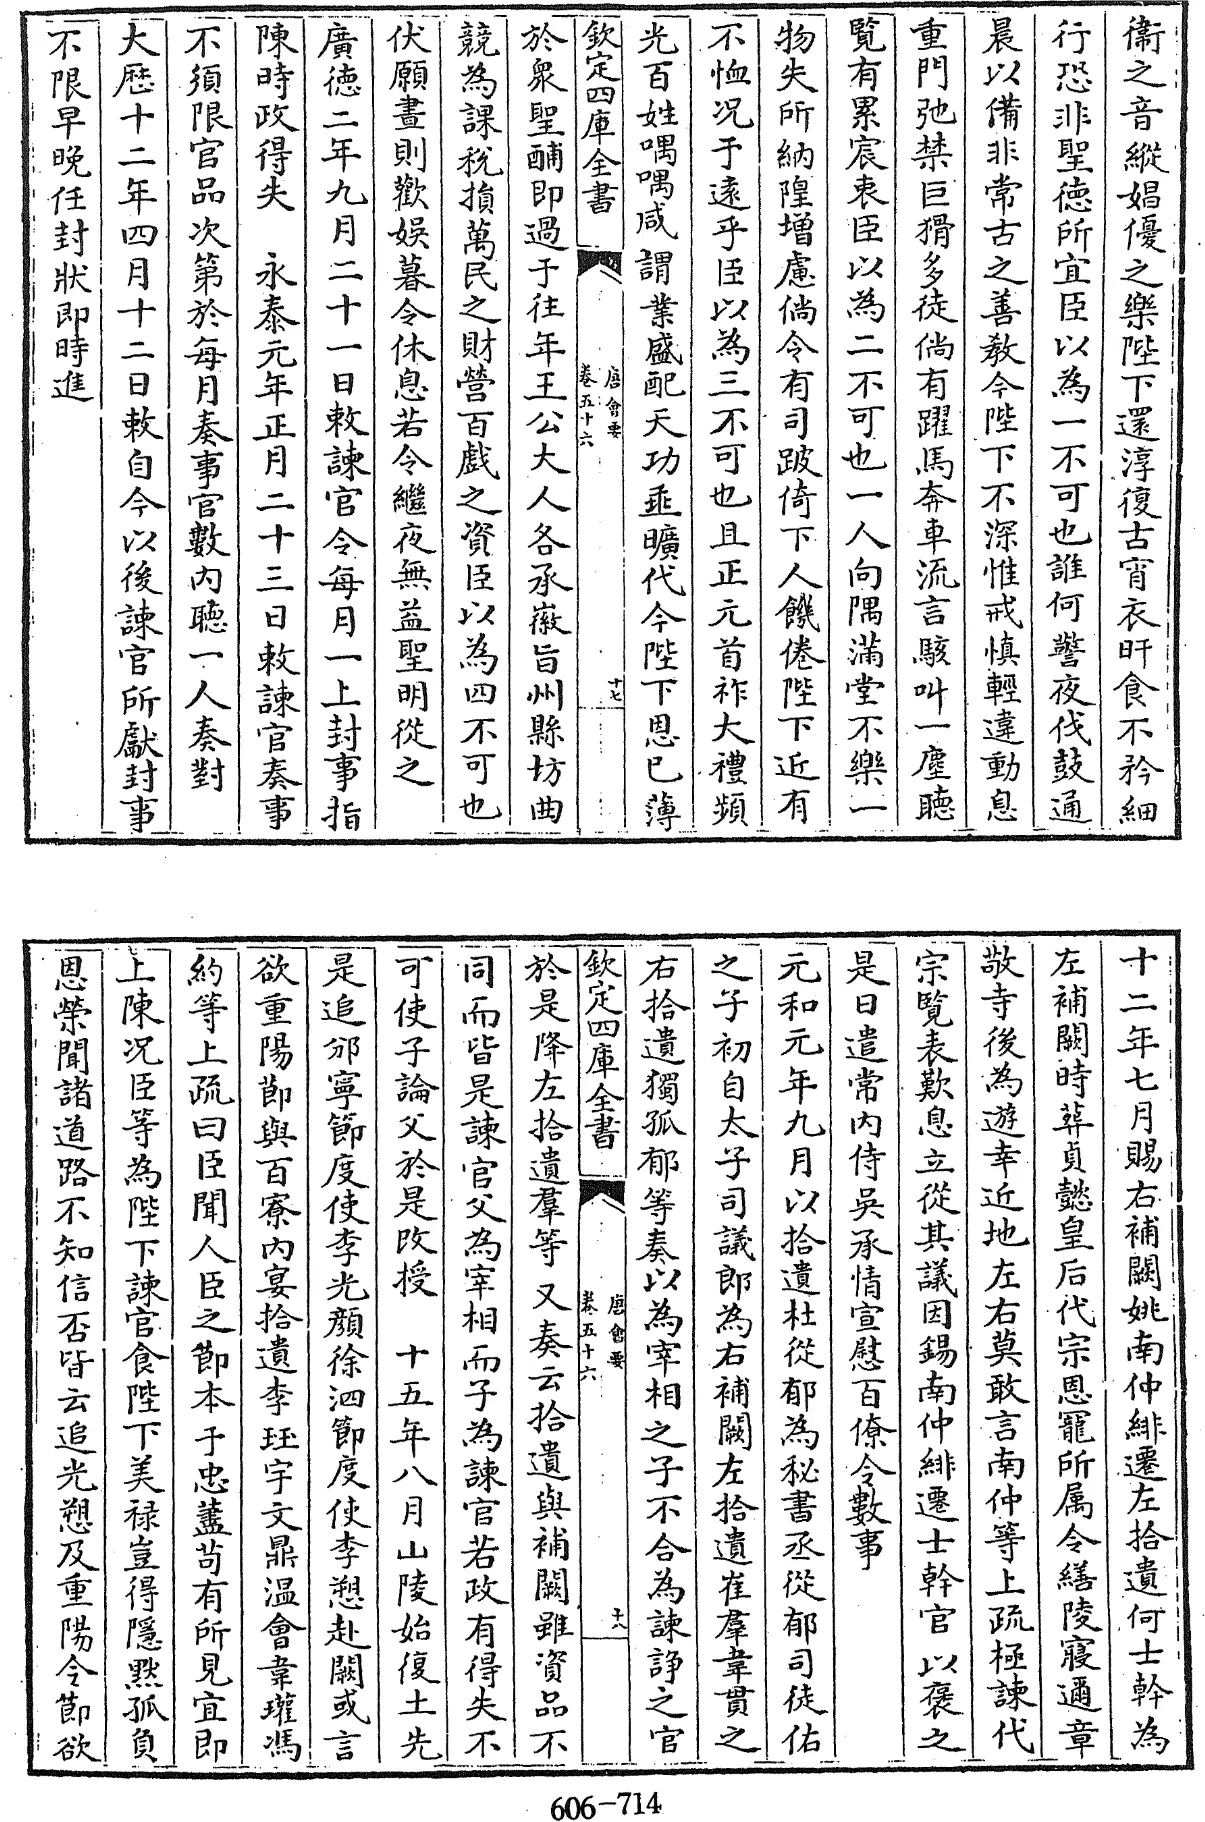 衞之音縱娼優之樂陛下還淳復古宵衣旰食不矜細
行恐非聖德所宜臣以為一不可也誰何警夜伐鼓通
晨以備非常古之善教今陛下不深惟戒慎輕違動息
重門弛禁巨猾多徒倘有躍馬奔車流言駭叫一塵聽
覽有累宸衷臣以為二不可也一人向隅滿堂不樂一
物失所納隍增慮倘令有司跛倚下人饑倦陛下近有
不恤況于遠乎臣以為三不可也且正元首祚大禮頻
光百姓喁喁咸謂業盛配天功垂曠代今陛下恩已薄
欽定四庫全書 唐會要 卷五十六 十七
於衆聖酺即過于往年王公大人各承徽旨州縣坊曲
競為課稅損萬民之財營百戲之資臣以為四不可也
伏願晝則歡娛暮令休息若令繼夜無益聖明從之
廣德二年九月二十一日敕諫官令每月一上封事指
陳時政得失 永泰元年正月二十三日敕諫官奏事
不須限官品次第於每月奏事官數內聽一人奏對
大歴十二年四月十二日敕自今以後諫官所獻封事
不限早晚任封狀即時進
十二年七月賜右補闕姚南仲緋遷左拾遺何士幹為
左補闕時葬貞懿皇后代宗恩寵所屬令繕陵寢邇章
敬寺後為遊幸近地左右莫敢言南仲等上疏極諫代
宗覽表歎息立從其議因錫南仲緋遷士幹官以襃之
是日遣常內侍吳承情宣慰百僚令數事
元和元年九月以拾遺杜從郁為秘書丞從郁司徒佑
之子初自太子司議郎為右補闕左拾遺崔羣韋貫之
右拾遺獨孤郁等奏以為宰相之子不合為諫諍之官
欽定四庫全書 唐會要 卷五十六 十八
於是降左拾遺羣等又奏云拾遺與補闕雖資品不
同而皆是諫官父為宰相而子為諫官若政有得失不
可使子論父於是改授 十五年八月山陵始復土先
是追邠寧節度使李光顔徐泗節度使李愬赴闕或言
欲重陽節與百寮內宴拾遺李珏宇文鼎温會韋瓘馮
約等上疏曰臣聞人臣之節本于忠藎苟有所見宜即
上陳況臣等為陛下諫官食陛下美禄豈得隱默孤負
恩榮聞諸道路不知信否皆云追光愬及重陽令節欲
606-714